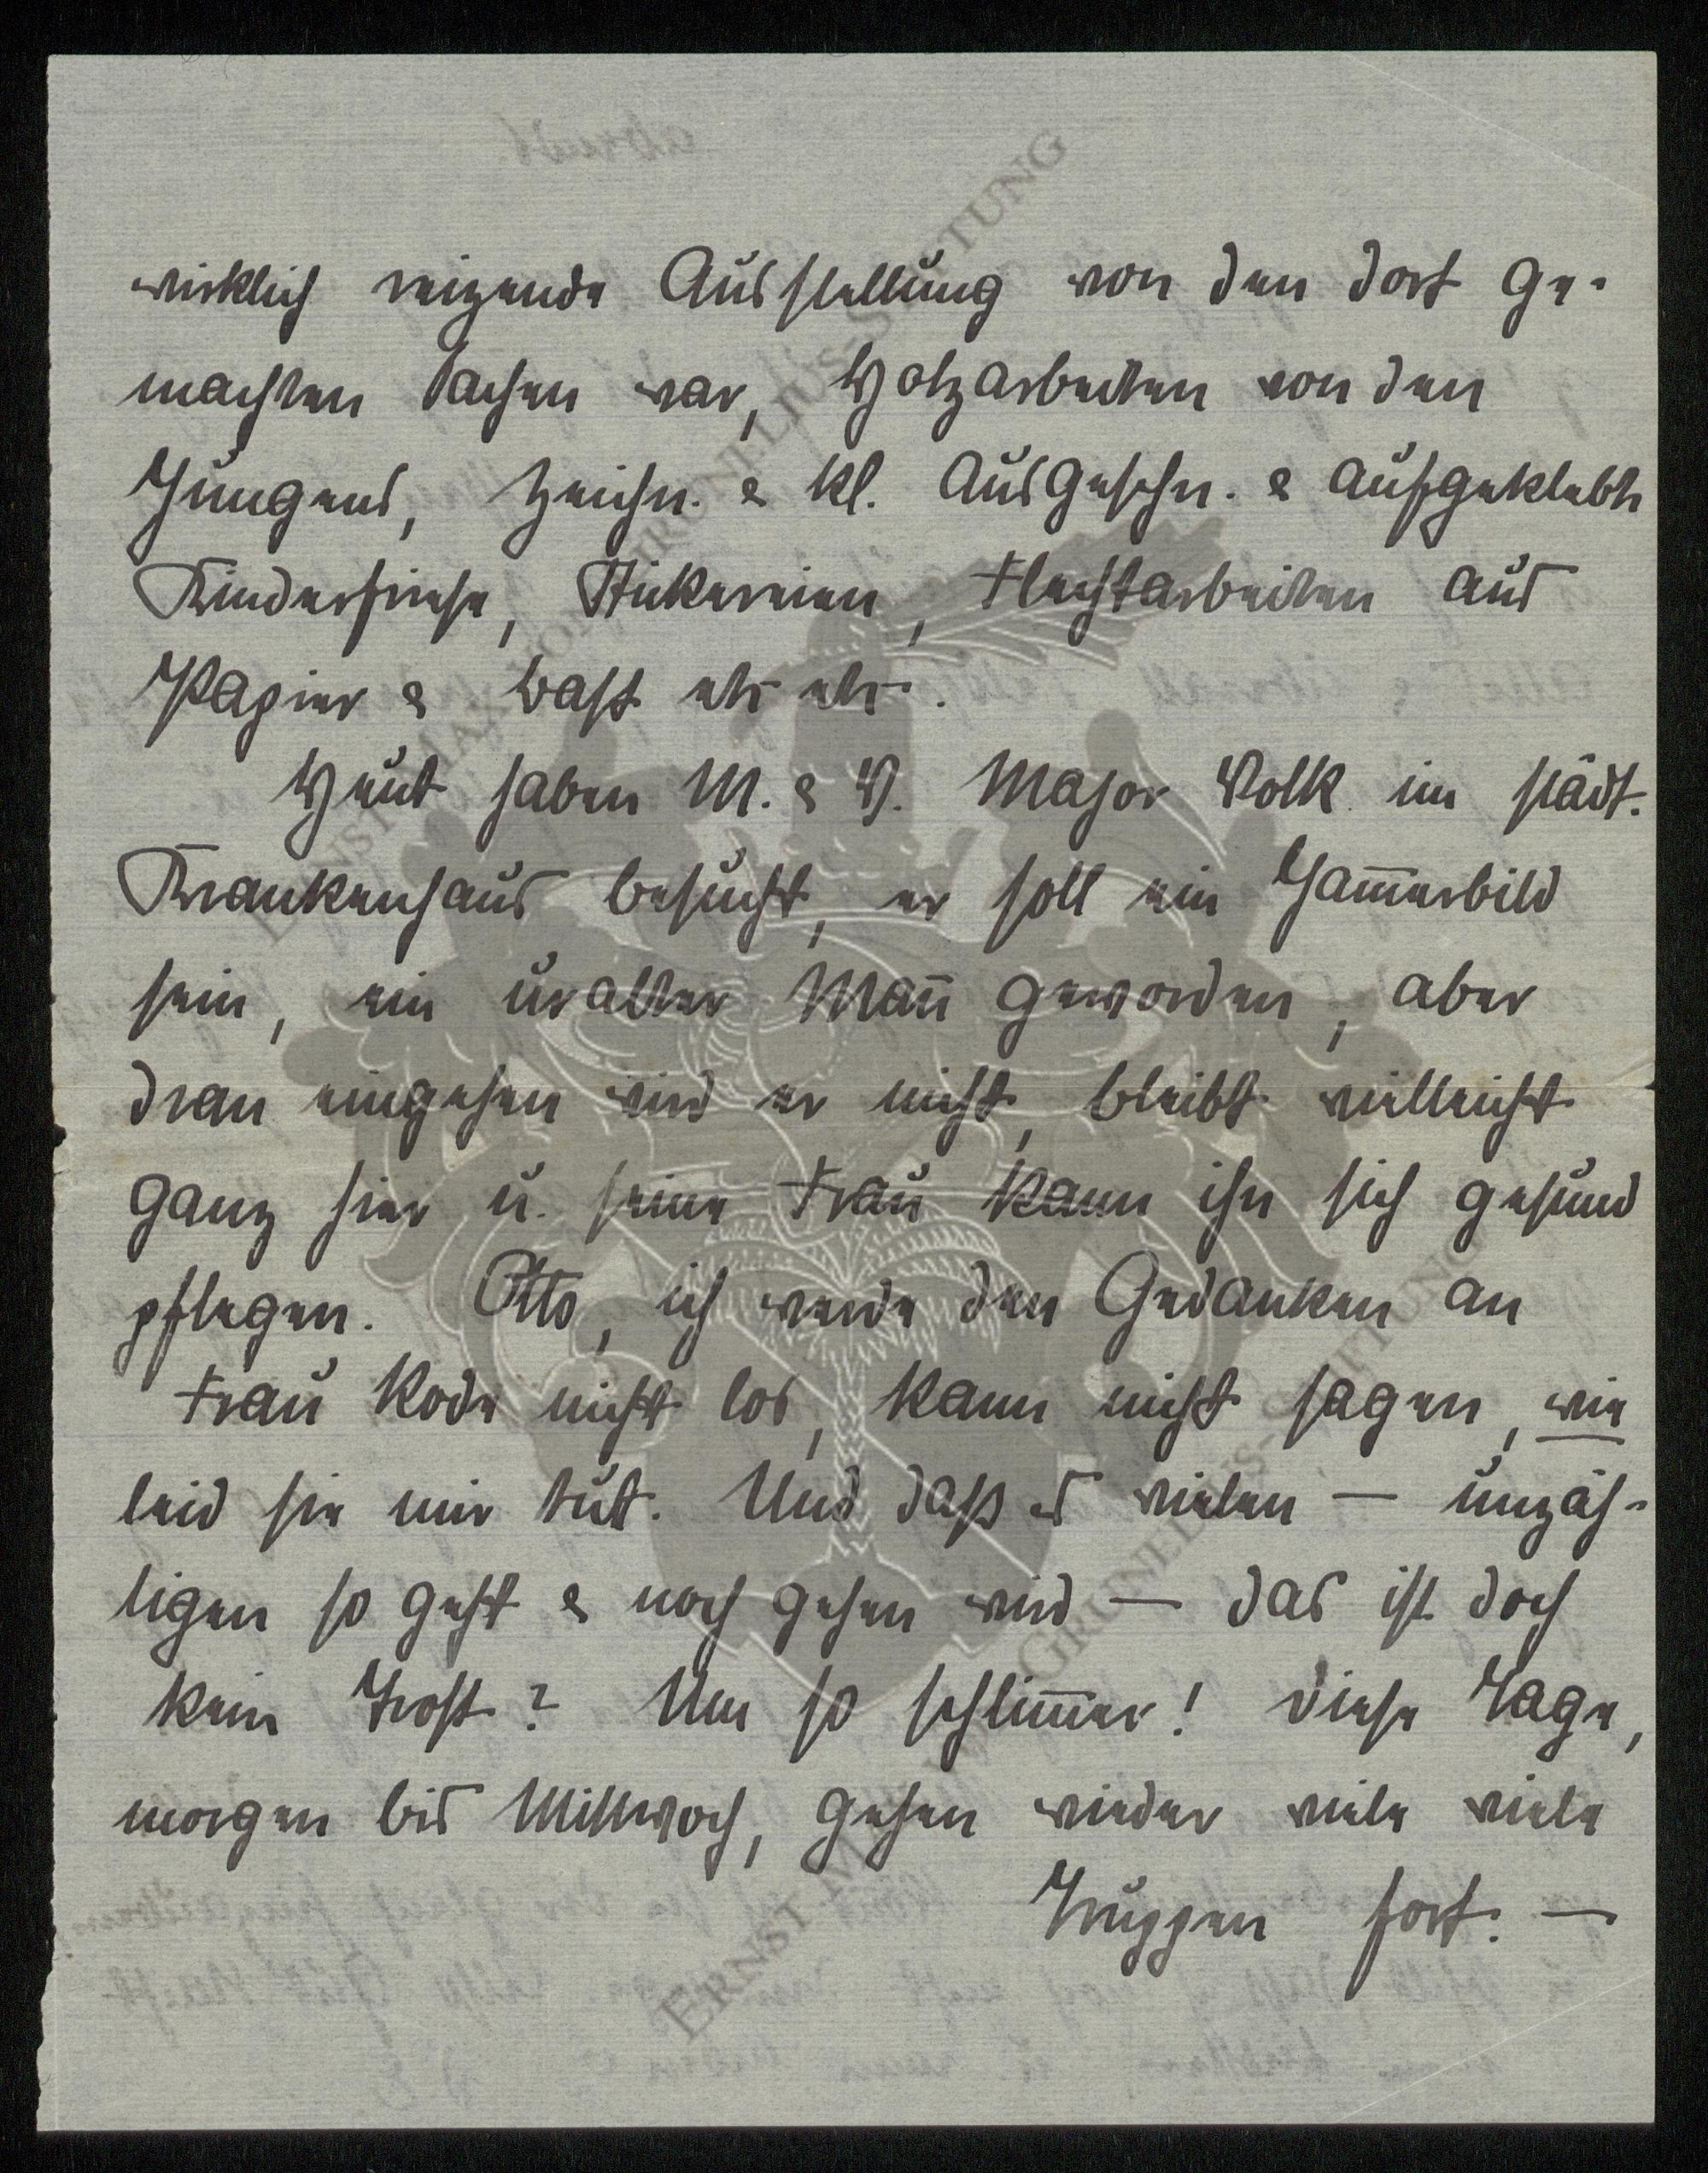 wirklich reizende Ausstellung von den dort ge-
machten Sachen war, Holzarbeiten von den
Jungens, Zeichn. & kl. ausgeschn. & aufgeklebte
Kinderfriese, Stickereien, Flechtarbeiten aus
Papier & Bast etc etc.
Heut haben M. & V. Major Volk im städt.
Krankenhaus besucht, er soll ein Jam̄erbild
sein, ein uralter Man̄ geworden, aber
dran eingehen wird er nicht, bleibt vielleicht
ganz hier u. seine Frau kann ihn sich gesund
pflegen. Otto, ich werde den Gedanken an
Frau Rode nicht los, kann nicht sagen, wie
leid sie mir tut. Und daß es vielen — unzäh-
ligen so geht & noch gehen wird — das ist doch
kein Trost? Um so schlim̄er! Diese Tage,
morgen bis Mittwoch, gehen wieder viele viele
Truppen fort. —
ERNST MAX VON GRUNELIUS-STIFTUNG
ERNST MAX VON GRUNELIUS-STIFTUNG